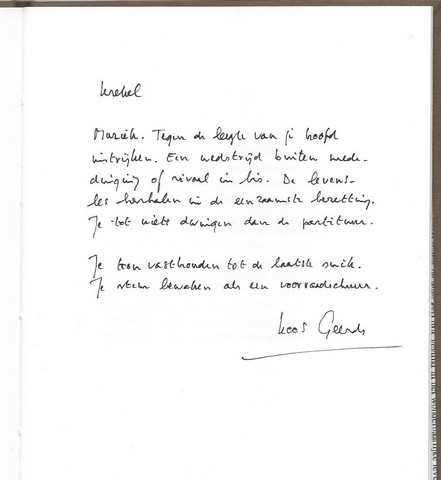 Krekel
Muziek. Tegen de leegte van je hoofd
instrijken. Een wedstrijd buiten mede-
dinging of rivaal in bis. De levens-
les herhalen in de eenzaamste bezetting.
Je tot niets dwingen dan de partituur.
Je toon vasthouden tot de laatste snik.
Je stem bewaken als een voorraadschuur.
Koos Geerds